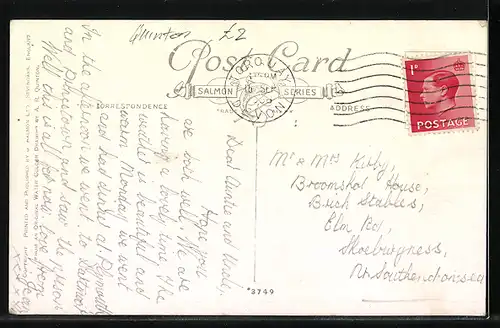 Quinton £2
Post Card
SALMON SERIES
TRADE MARK
CORRESPONDENCE
ADDRESS
TORQUAY
SEP
DEVON
1D
POSTAGE
Dear Auntie and Uncle,
Hope you
are both well. We are
having a lovely time. The
weather is beautiful and
warm. Monday we went
and had dinner at Plymouth
In the afternoon we went to Dartmoor
and Princetown and saw the prison
Well this is all for now. love from
xxxx
Mr & Mrs Kirby,
House,
Stables,
Elm Rd,
Shoeburyness,
Nr. Southend-on-sea
*3749
PRINTED AND PUBLISHED BY J. SALMON LTD., SEVENOAKS, ENGLAND
FROM AN ORIGINAL WATER COLOUR DRAWING BY A. R. QUINTON.